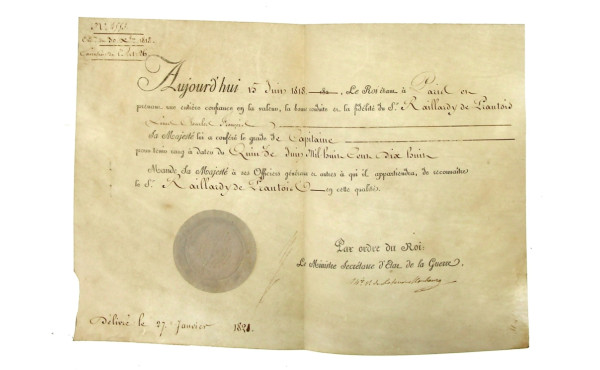 Aujourd'hui 15 Juin 1818. Le Roi étant à Paris et
prenant une entière confiance en la valeur, la bonne conduite et la fidélité du S.r Raillardy de Prautois
Sa Majesté lui a conféré le grade de Capitaine
pour tenir rang à dater du Quinze Juin Mil huit Cent dix huit
Mande Sa Majesté à ses Officiers généraux et autres à qui il appartiendra, de reconnaître
le S.r Raillardy de Prautois en cette qualité.
Par ordre du Roi:
Le Ministre Secrétaire d'Etat de la Guerre.
Délivré le 27 Janvier 1821.